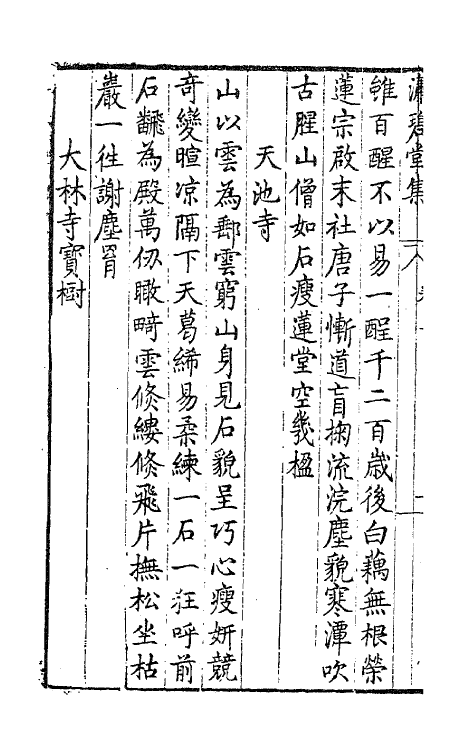 瀟碧堂集
雖百醒不以易一酲千二百歳後白藕無根榮
蓮宗啟末社唐子慚道盲掬流浣塵貌寒潭吹
古腥山僧如石瘦蓮堂空幾楹
天池寺
山以雲為鄰雲窮山身見石貌呈巧心瘦妍競
奇變暄凉隔下天葛絺易柔練一石一狂呼前
石翻為殿萬仞瞰畸雲倏縷倏飛片撫松坐枯
巖一徃謝塵罥
大林寺寶樹